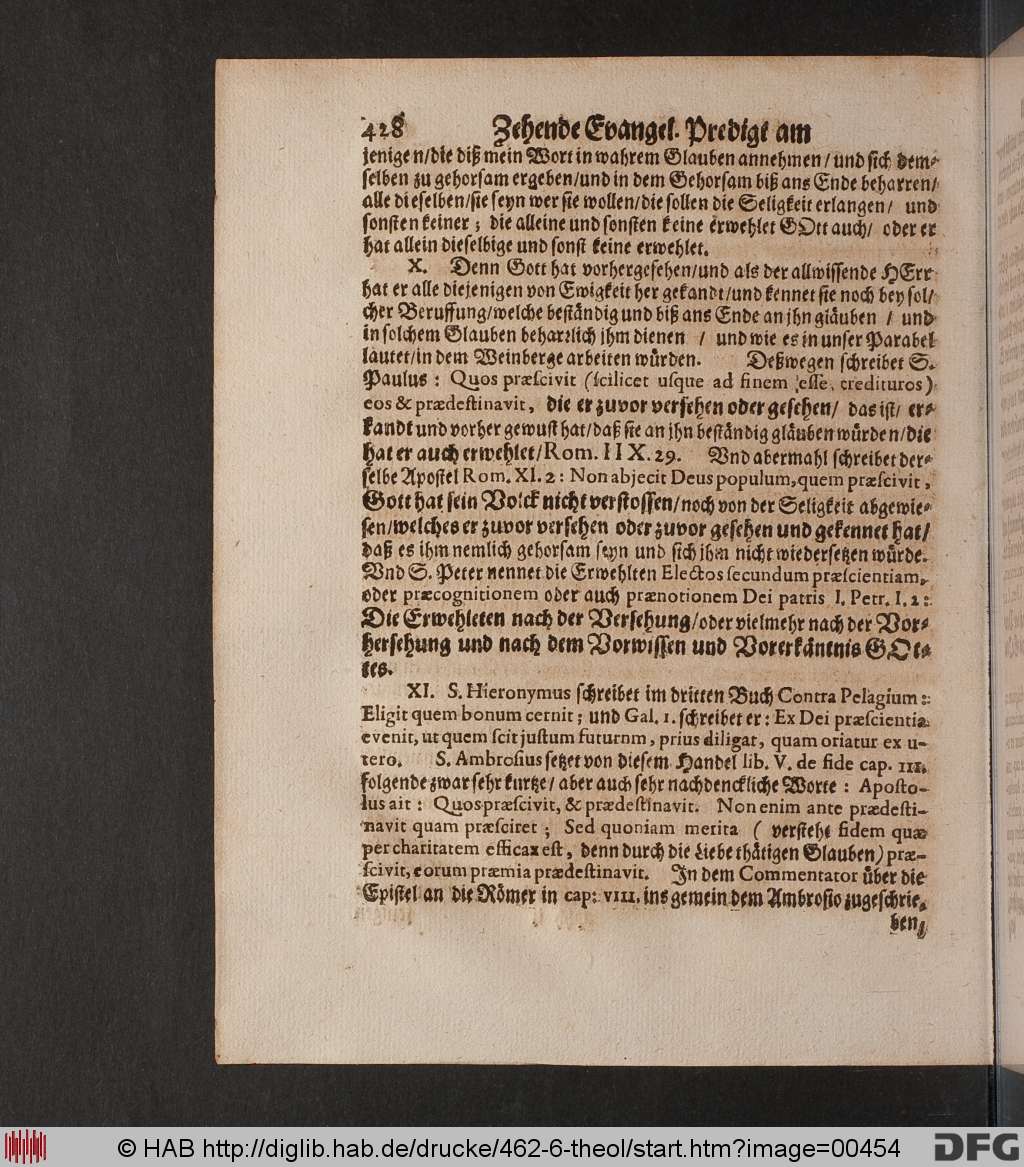 428 Zehende Evangel. Predigt am
jenigen/die diß mein Wort in wahrem Glauben annehmen/ und sich dem-
selben zu gehorsam ergeben/und in dem Gehorsam biß ans Ende beharren/
alle dieselben/sie seyn wer sie wollen/die sollen die Seligkeit erlangen/ und
sonsten keiner; die alleine und sonsten keine erwehlet GOtt auch/ oder er
hat allein dieselbige und sonst keine erwehlet.
X. Denn Gott hat vorhergesehen/und als der allwissende HErr
hat er alle diejenigen von Ewigkeit her gekandt/und kennet sie noch bey sol/
cher Beruffung/welche beständig und biß ans Ende an jhn gläuben / und
in solchem Glauben beharrlich jhm dienen / und wie es in unser Parabel
lautet/in dem Weinberge arbeiten würden. Deßwegen schreibet S.
Paulus: Quos præscivit (scilicet usque ad finem esse, credituros)
eos & prædestinavit, die er zuvor versehen oder gesehen/ das ist/ er-
kandt und vorher gewust hat/daß sie an jhn beständig gläuben würden/die
hat er auch erwehlet/Rom. IIX. 29. Vnd abermahl schreibet der-
selbe Apostel Rom. XI. 2: Non abjecit Deus populum, quem præscivit,
Gott hat sein Volck nicht verstossen/noch von der Seligkeit abgewie-
sen/welches er zuvor versehen oder zuvor gesehen und gekennet hat/
daß es ihm nemlich gehorsam seyn und sich jhm nicht wiedersetzen würde.
Vnd S. Peter nennet die Erwehlten Electos secundum præscientiam,
oder præcognitionem oder auch prænotionem Dei patris I. Petr. I. 2:
Die Erwehleten nach der Versehung/oder vielmehr nach der Vor-
hersehung und nach dem Vorwissen und Vorerkäntnis GOt-
tes.
XI. S. Hieronymus schreibet im dritten Buch Contra Pelagium:
Eligit quem bonum cernit; und Gal. 1. schreibet er: Ex Dei præscientia
evenit, ut quem scit justum futurum, prius diligat, quam oriatur ex u-
tero. S. Ambrosius setzet von diesem Handel lib. V. de fide cap. III.
folgende zwar sehr kurtze/ aber auch sehr nachdenckliche Worte: Aposto-
lus ait: Quos præscivit, & prædestinavit. Non enim ante prædesti-
navit quam præsciret; Sed quoniam merita (verstehe fidem quæ
per charitatem efficax est, denn durch die Liebe thätigen Glauben) præ-
scivit, eorum præmia prædestinavit. In dem Commentator über die
Epistel an die Römer in cap: VIII. ins gemein dem Ambrosio zugeschrie-
ben,
© HAB http://diglib.hab.de/drucke/462-6-theol/start.htm?image=00454
DFG